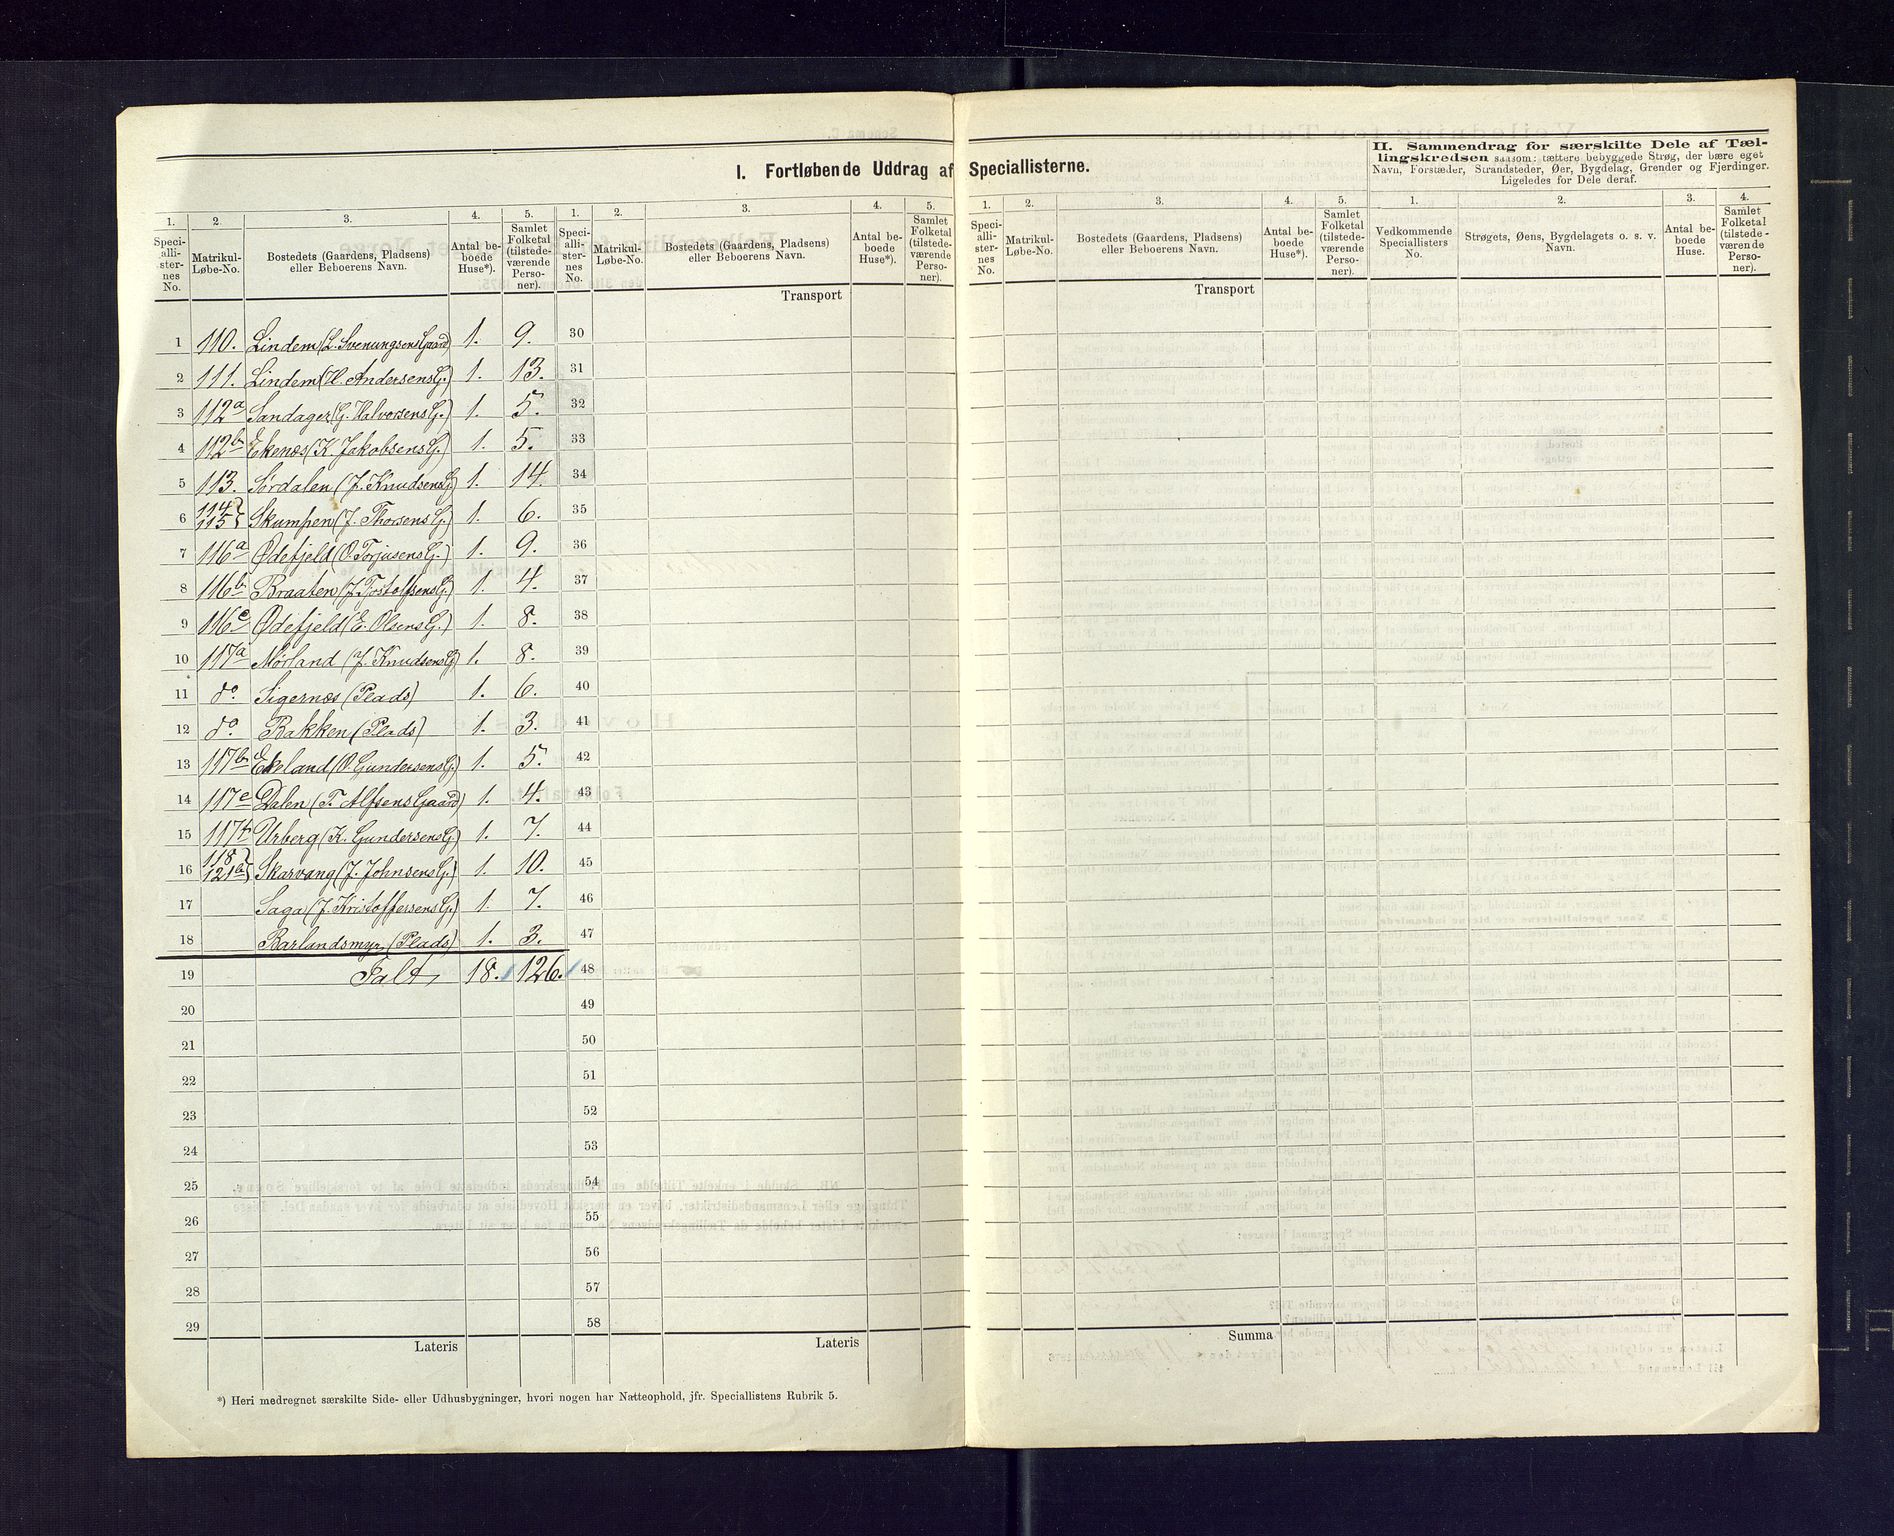 I. Fortløbende Uddrag af Speciallisterne.
II. Sammendrag for særskilte Dele af Tællingskredsen saasom: tættere bebyggede Strøg, der bære eget
Navn, Forstæder, Strandsteder, Øer, Bygdelag, Grender og Fjerdinger.
Ligeledes for Dele deraf.
1. 2. 3. 4. 5. 1. 2. 3. 4. 5. 1. 2. 3. 4. 5. 1. 2. 3. 4.
Speciallisternes No. Matrikul-Løbe-No. Bostedets (Gaardens, Pladsens) eller Beboerens Navn. Antal beboede Huse*). Samlet Folketal (tilstedeværende Personer).
Speciallisternes No. Matrikul-Løbe-No. Bostedets (Gaardens, Pladsens) eller Beboerens Navn. Antal beboede Huse*). Samlet Folketal (tilstedeværende Personer).
Speciallisternes No. Matrikul-Løbe-No. Bostedets (Gaardens, Pladsens) eller Beboerens Navn. Antal beboede Huse*). Samlet Folketal (tilstedeværende Personer).
Vedkommende Speciallisters No. Strøgets, Øens, Bygdelagets o. s. v. Navn. Antal beboede Huse. Samlet Folketal (tilstedeværende Personer).
Transport Transport
1 110. Lindem (L. Svenungsens Gaard) 1. 9. 30
2 111. Lindem (H. Andersens G.) 1. 13. 31
3 112a Sandager (G. Halvorsens G.) 1. 5. 32
4 112b Ekenæs (K. Jakobsens G.) 1. 5. 33
5 113. Sørdalen (J. Knudsens G) 1. 14. 34
6 114 115 } Skumpen (J. Thorsens G.) 1. 6. 35
7 116a Ødefjeld (O. Torjusens G.) 1. 9. 36
8 116b Braaten (J. Tostolfsens G.) 1. 4. 37
9 116c Ødefjeld (E. Olsens G.) 1. 8. 38
10 117a Mørland (J. Knudsens G) 1. 8. 39
11 do. Sigernæs (Plads) 1. 6. 40
12 do. Bakken (Plads) 1. 3. 41
13 117b Ekeland (O. Gundersens G.) 1. 5. 42
14 117e Dalen (T. Alfsens Gaard) 1. 4. 43
15 117f Urberg (K. Gundersens G.) 1. 7. 44
16 118 121b } Skarvang (J. Johnsens G.) 1. 10. 45
17 Saga (J. Kristoffersens G.) 1. 7. 46
18 Barlandsmyr (Plads) 1. 3. 47
19 Ialt, 18. 126. 48
20 49
21 50
22 51
23 52
24 53
25 54
26 55
27 56
28 57
29 58
Lateris Lateris Summa
*) Heri medregnet særskilte Side- eller Udhusbygninger, hvori nogen har Natteophold, jfr. Speciallistens Rubrik 5.